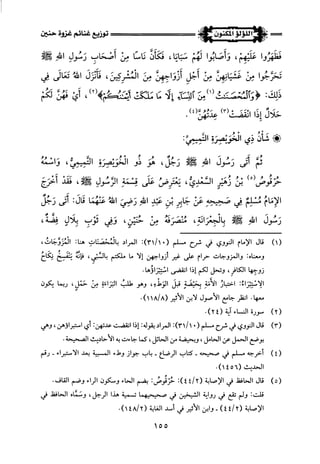 اللؤلؤ المكنون
توزيع غنائم غزوة حنين
فَظَهَرُوا عَلَيْهِمْ، وَأَصَابُوا لَهُمْ سَبَايَا، فَكَأَنَّ نَاسًا مِنْ أَصْحَابِ رَسُولِ اللهِ ﷺ
تَحَرَّجُوا مِنْ غَشَيَانِهِنَّ مِنْ أَجْلِ أَزْوَاجِهِنَّ مِنَ الْمُشْرِكِينَ، فَأَنْزَلَ اللهُ تَعَالَى فِي
ذَلِكَ: ﴿وَالْمُحْصَنَاتُ(١) مِنَ النِّسَاءِ إِلَّا مَا مَلَكَتْ أَيْمَانُكُمْ﴾(٢)، أَيْ فَهُنَّ لَكُمْ
حَلَالٌ إِذَا انْقَضَتْ(٣) عِدَّتُهُنَّ(٤).
شَأْنُ ذِي الْخُوَيْصِرَةِ التَّمِيمِيِّ:
ثُمَّ أَتَى رَسُولَ اللهِ ﷺ رَجُلٌ، هُوَ ذُو الْخُوَيْصِرَةِ التَّمِيمِيُّ، وَاسْمُهُ
حُرْقُوصُ(٥) بْنُ زُهَيْرٍ السَّعْدِيُّ، يَعْتَرِضُ عَلَى قِسْمَةِ الرَّسُولِ ﷺ، فَقَدْ أَخْرَجَ
الإِمَامُ مُسْلِمٌ فِي صَحِيحِهِ عَنْ جَابِرِ بْنِ عَبْدِ اللهِ رَضِيَ اللهُ عَنْهُمَا قَالَ: أَتَى رَجُلٌ
رَسُولَ اللهِ ﷺ بِالْجِعْرَانَةِ، مُنْصَرَفَهُ مِنْ حُنَيْنٍ، وَفِي ثَوْبِ بِلَالٍ فِضَّةٌ،
(١) قال الإمام النووي في شرح مسلم (٣١/١٠): المراد بالْمُحْصَنَاتِ هنا: الْمُزَوَّجَاتُ،
ومعناه: والمزوجات حرام على غير أزواجهن إلا ما ملكتم بالسَّبي، فإنَّهُ يَنْفَسِخُ نِكَاحُ
زوجها الكافر، وتحل لكم إذا انقضى اسْتِبْرَاؤُها.
الِاسْتِبْرَاءُ: اختبارُ الأَمَةِ بِحَيْضَةٍ قبلَ الوَطْءِ، وهو طلبُ البَرَاءَةِ مِنْ حَمْلٍ، ربما يكون
معها. انظر جامع الأصول لابن الأثير (١١٨/٨).
(٢) سورة النساء آية (٢٤).
(٣) قال النووي في شرح مسلم (٣١/١٠): المراد بقوله: إذا انقضت عدتهن: أي استبراؤهن، وهي
بوضع الحمل عن الحامل، وبحيضة من الحائل، كما جاءت به الأحاديث الصحيحة.
(٤) أخرجه مسلم في صحيحه - كتاب الرضاع - باب جواز وطء المسبية بعد الاستبراء - رقم
الحديث (١٤٥٦).
(٥) قال الحافظ في الإصابة (٤٤/٢): حُرْقُوصُ: بضم الحاء وسكون الراء وضم القاف.
قلت: ولم تقع في رواية الشيخين في صحيحيهما تسمية هذا الرجل، وسَمَّاه الحافظ في
الإصابة (٤٤/٢)، وابن الأثير في أسد الغابة (١٤٨/٢).
١٥٥